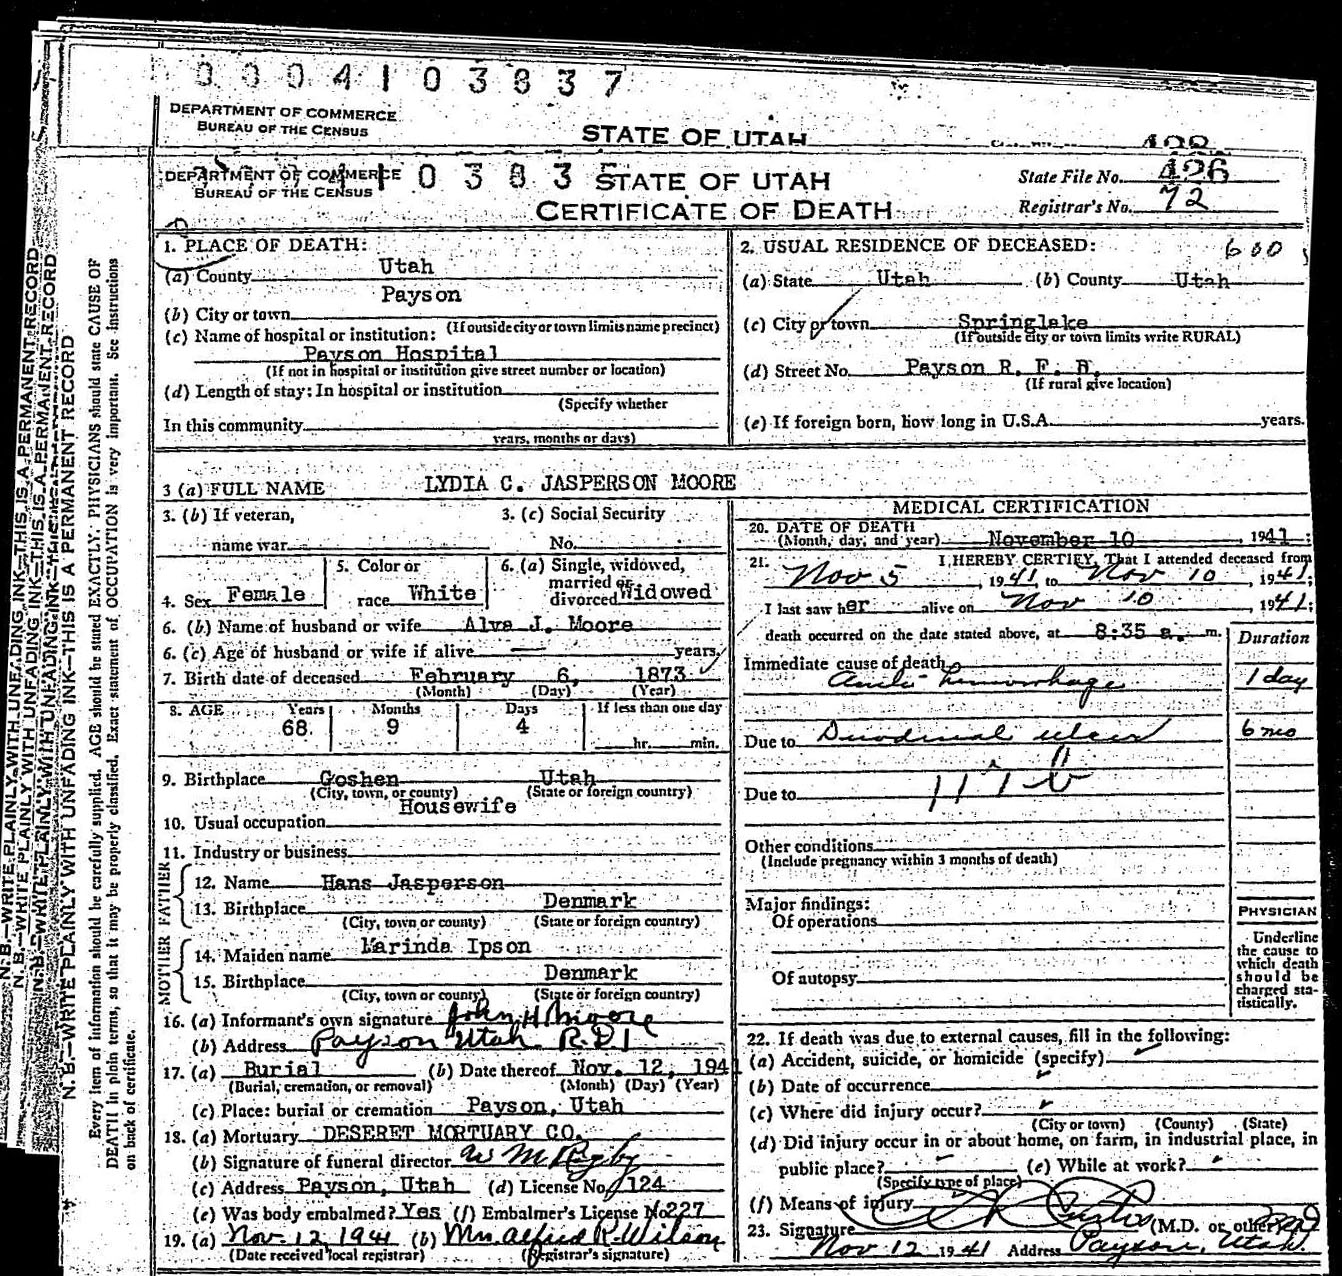 0004103837
DEPARTMENT OF COMMERCE
BUREAU OF THE CENSUS
STATE OF UTAH
DEPARTMENT OF COMMERCE
BUREAU OF THE CENSUS
STATE OF UTAH
CERTIFICATE OF DEATH
State File No. 426
Registrar's No. 72
1. PLACE OF DEATH:
(a) County Utah
(b) City or town Payson
(If outside city or town limits name precinct)
(c) Name of hospital or institution:
Payson Hospital
(If not in hospital or institution give street number or location)
(d) Length of stay: In hospital or institution
(Specify whether
In this community
years, months or days)
2. USUAL RESIDENCE OF DECEASED: 600
(a) State Utah (b) County Utah
(c) City or town Springlake
(If outside city or town limits write RURAL)
(d) Street No. Payson R. F. D.
(If rural give location)
(e) If foreign born, how long in U.S.A. years.
3 (a) FULL NAME LYDIA C. JASPERSON MOORE
3. (b) If veteran,
name war
3. (c) Social Security
No.
4. Sex Female
5. Color or
race White
6. (a) Single, widowed,
married or
divorced Widowed
6. (b) Name of husband or wife Alva J. Moore
6. (c) Age of husband or wife if alive years.
7. Birth date of deceased February 6, 1873
(Month) (Day) (Year)
8. AGE Years Months Days If less than one day
68 9 4 hr. min.
9. Birthplace Goshen Utah
(City, town, or county) (State or foreign country)
10. Usual occupation Housewife
11. Industry or business
FATHER
12. Name Hans Jasperson
13. Birthplace Denmark
(City, town or county) (State or foreign country)
MOTHER
14. Maiden name Marinda Ipson
15. Birthplace Denmark
(City, town or county) (State or foreign country)
16. (a) Informant's own signature John H Moore
(b) Address Payson Utah R.D 1
17. (a) Burial (b) Date thereof Nov. 12, 1941
(Burial, cremation, or removal) (Month) (Day) (Year)
(c) Place: burial or cremation Payson, Utah
18. (a) Mortuary DESERET MORTUARY CO.
(b) Signature of funeral director
(c) Address Payson, Utah (d) License No. 124
(e) Was body embalmed? Yes (f) Embalmer's License No. 227
19. (a) Nov. 12 1941 (b) Mrs. Alfred R. Wilson
(Date received local registrar) (Registrar's signature)
MEDICAL CERTIFICATION
20. DATE OF DEATH
(Month, day, and year) November 10, 1941;
21. I HEREBY CERTIFY, That I attended deceased from
Nov 5, 1941, to Nov 10, 1941,
I last saw her alive on Nov 10, 1941;
death occurred on the date stated above, at 8:35 a. m.
Duration
Immediate cause of death
hemorrhage 1 day
Due to Duodenal ulcer 6 mo
Due to 117 b
Other conditions
(Include pregnancy within 3 months of death)
Major findings:
Of operations
Of autopsy
PHYSICIAN
Underline
the cause to
which death
should be
charged sta-
tistically.
22. If death was due to external causes, fill in the following:
(a) Accident, suicide, or homicide (specify)
(b) Date of occurrence
(c) Where did injury occur?
(City or town) (County) (State)
(d) Did injury occur in or about home, on farm, in industrial place, in
public place? (e) While at work?
(Specify type of place)
(f) Means of injury
23. Signature (M.D. or other)
Nov 12 1941 Address Payson, Utah
N. B.—WRITE PLAINLY WITH UNFADING INK—THIS IS A PERMANENT RECORD
N. B.—WRITE PLAINLY WITH UNFADING INK—THIS IS A PERMANENT RECORD
N. B.—WRITE PLAINLY WITH UNFADING INK—THIS IS A PERMANENT RECORD
N. B.—WRITE PLAINLY WITH UNFADING INK—THIS IS A PERMANENT RECORD
Every item of information should be carefully supplied. AGE should be stated EXACTLY. PHYSICIANS should state CAUSE OF
DEATH in plain terms, so that it may be properly classified. Exact statement of OCCUPATION is very important. See instructions
on back of certificate.